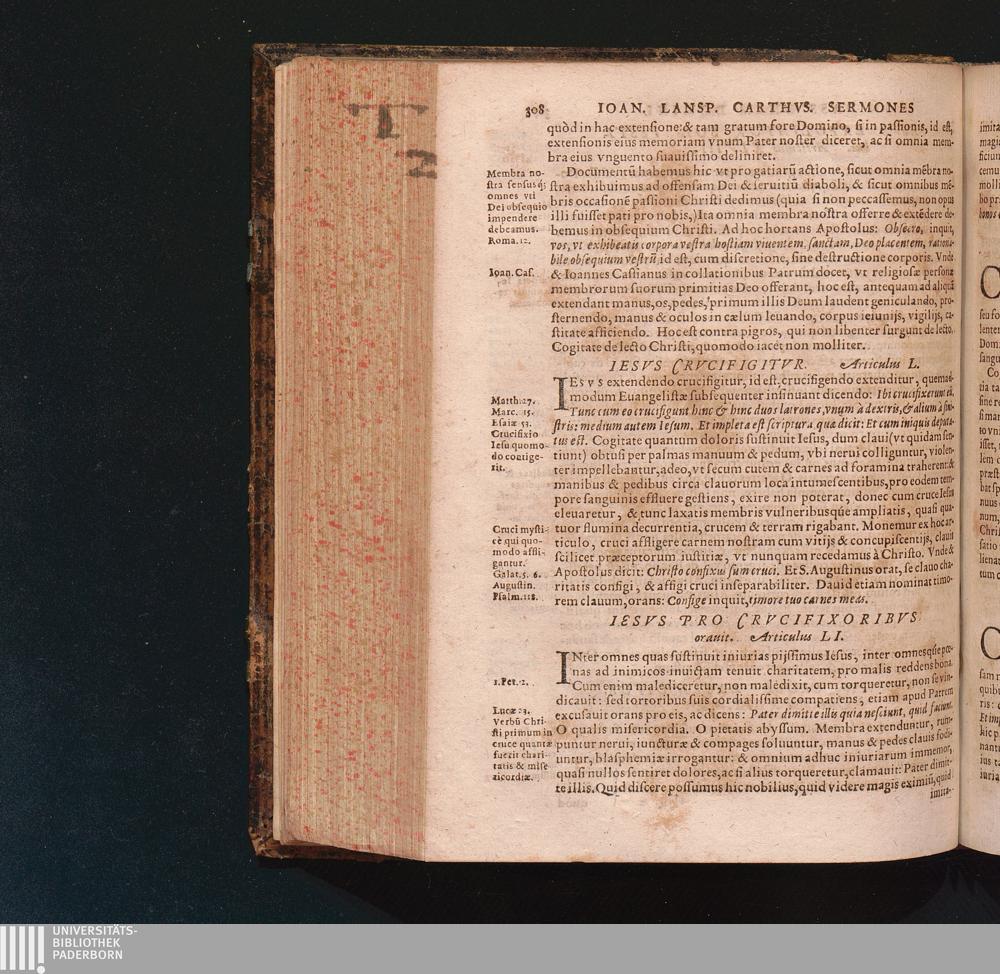 T
2
308 IOAN. LANSP. CARTHVS. SERMONES
quòd in hac extensione: & tam gratum fore Domino, si in passionis, id est,
extensionis eius memoriam vnum Pater noster diceret, ac si omnia mem-
bra eius vnguento suauissimo deliniret.
Documentū habemus hic vt pro gatiarū actione, sicut omnia mēbra no-
stra exhibuimus ad offensam Dei & seruitiū diaboli, & sicut omnibus mē-
bris occasionē passioni Christi dedimus (quia si non peccassemus, non opus
illi fuisset pati pro nobis,) Ita omnia membra nostra offerre & extēdere de-
bemus in obsequium Christi. Ad hoc hortans Apostolus: Obsecro, inquit,
vos, vt exhibeatis corpora vestra hostiam viuentem, sanctam, Deo placentem, rationa-
bile obsequium vestrū, id est, cum discretione, sine destructione corporis. Vnde
& Ioannes Cassianus in collationibus Patrum docet, vt religiosæ personæ
membrorum suorum primitias Deo offerant, hoc est, antequam ad aliquā
extendant manus, os, pedes, primum illis Deum laudent geniculando, pro-
sternendo, manus & oculos in cælum leuando, corpus ieiunijs, vigilijs, ca-
stitate afficiendo. Hoc est contra pigros, qui non libenter surgunt de lecto.
Cogitate de lecto Christi, quomodo iacet non molliter.
Membra no-
stra sensusq;
omnes vti
Dei obsequio
impendere
debeamus.
Roma. 12.
Ioan. Cas.
IESVS CRVCIFIGITVR. Articulus L.
IEsvs extendendo crucifigitur, id est, crucifigendo extenditur, quemad-
modum Euangelistæ subsequenter insinuant dicendo: Ibi crucifixerunt eū.
Tunc cum eo crucifigunt hinc & hinc duos latrones, vnum à dextris, & alium à sini-
stris: medium autem Iesum. Et impleta est scriptura quæ dicit: Et cum iniquis deputa-
tus est. Cogitate quantum doloris sustinuit Iesus, dum claui (vt quidam sen-
tiunt) obtusi per palmas manuum & pedum, vbi nerui colliguntur, violen-
ter impellebantur, adeo, vt secum cutem & carnes ad foramina traherent: &
manibus & pedibus circa clauorum loca intumescentibus, pro eodem tem-
pore sanguinis effluere gestiens, exire non poterat, donec cum cruce Iesus
eleuaretur, & tunc laxatis membris vulneribusq́ue ampliatis, quasi qua-
tuor flumina decurrentia, crucem & terram rigabant. Monemur ex hoc ar-
ticulo, cruci affligere carnem nostram cum vitijs & concupiscentijs, clauis
scilicet præceptorum iustitiæ, vt nunquam recedamus à Christo. Vnde &
Apostolus dicit: Christo confixus sum cruci. Et S. Augustinus orat, se clauo cha-
ritatis configi, & affigi cruci inseparabiliter. Dauid etiam nominat timo-
rem clauum, orans: Confige inquit, timore tuo carnes meas.
Matth. 27.
Marc. 15.
Esaiæ 53.
Crucifixio
Iesu quomo-
do cōtige-
rit.
Cruci mysti-
cè qui quo-
modo affli-
gantur.
Galat. 5. 6.
Augustin.
Psalm. 118.
IESVS PRO CRVCIFIXORIBVS
orauit. Articulus LI.
INter omnes quas sustinuit iniurias pijssimus Iesus, inter omnesq́ue pœ-
nas ad inimicos inuictam tenuit charitatem, pro malis reddens bona.
Cum enim malediceretur, non maledixit, cum torqueretur, non se vin-
dicauit: sed tortoribus suis cordialissime compatiens, etiam apud Patrem
excusauit orans pro eis, ac dicens: Pater dimitte illis quia nesciunt, quid faciunt.
O qualis misericordia. O pietatis abyssum. Membra extenduntur, rum-
puntur nerui, iuncturæ & compages soluuntur, manus & pedes clauis fodi-
untur, blasphemiæ irrogantur: & omnium adhuc iniuriarum immemor,
quasi nullos sentiret dolores, ac si alius torqueretur, clamauit: Pater dimit-
te illis. Quid discere possumus hic nobilius, quid videre magis eximiū, quid
imita-
1. Pet. 2.
Lucæ 23.
Verbū Chri-
sti primum in
cruce quantæ
fuerit chari-
tatis & mise-
ricordiæ.
UNIVERSITÄTS-
BIBLIOTHEK
PADERBORN